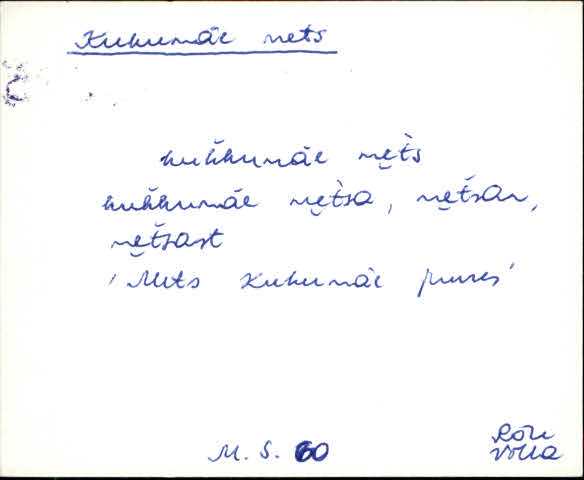 Kukumäe nets
kuk̆kumäe ne̮t̀s
kuk̆kumäe ne̮t̀sa, ne̮t̆san,
ne̮t̆sast
'Mets Kukumäe juures'
M. S. 60
Võlla